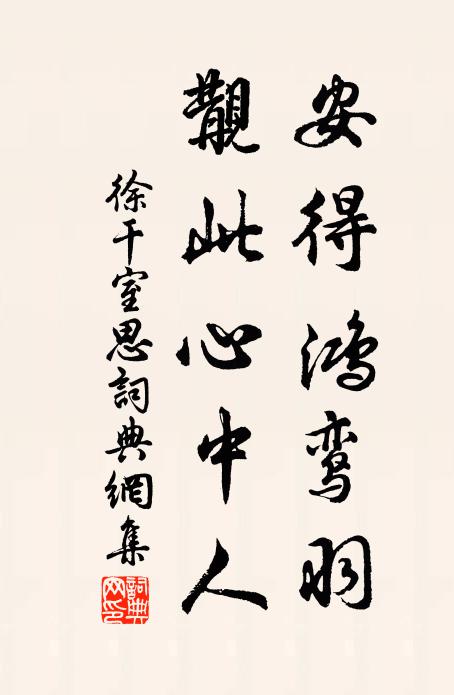 安得鸿鸾羽
觏此心中人
徐干室思詞典網集
詞典网印